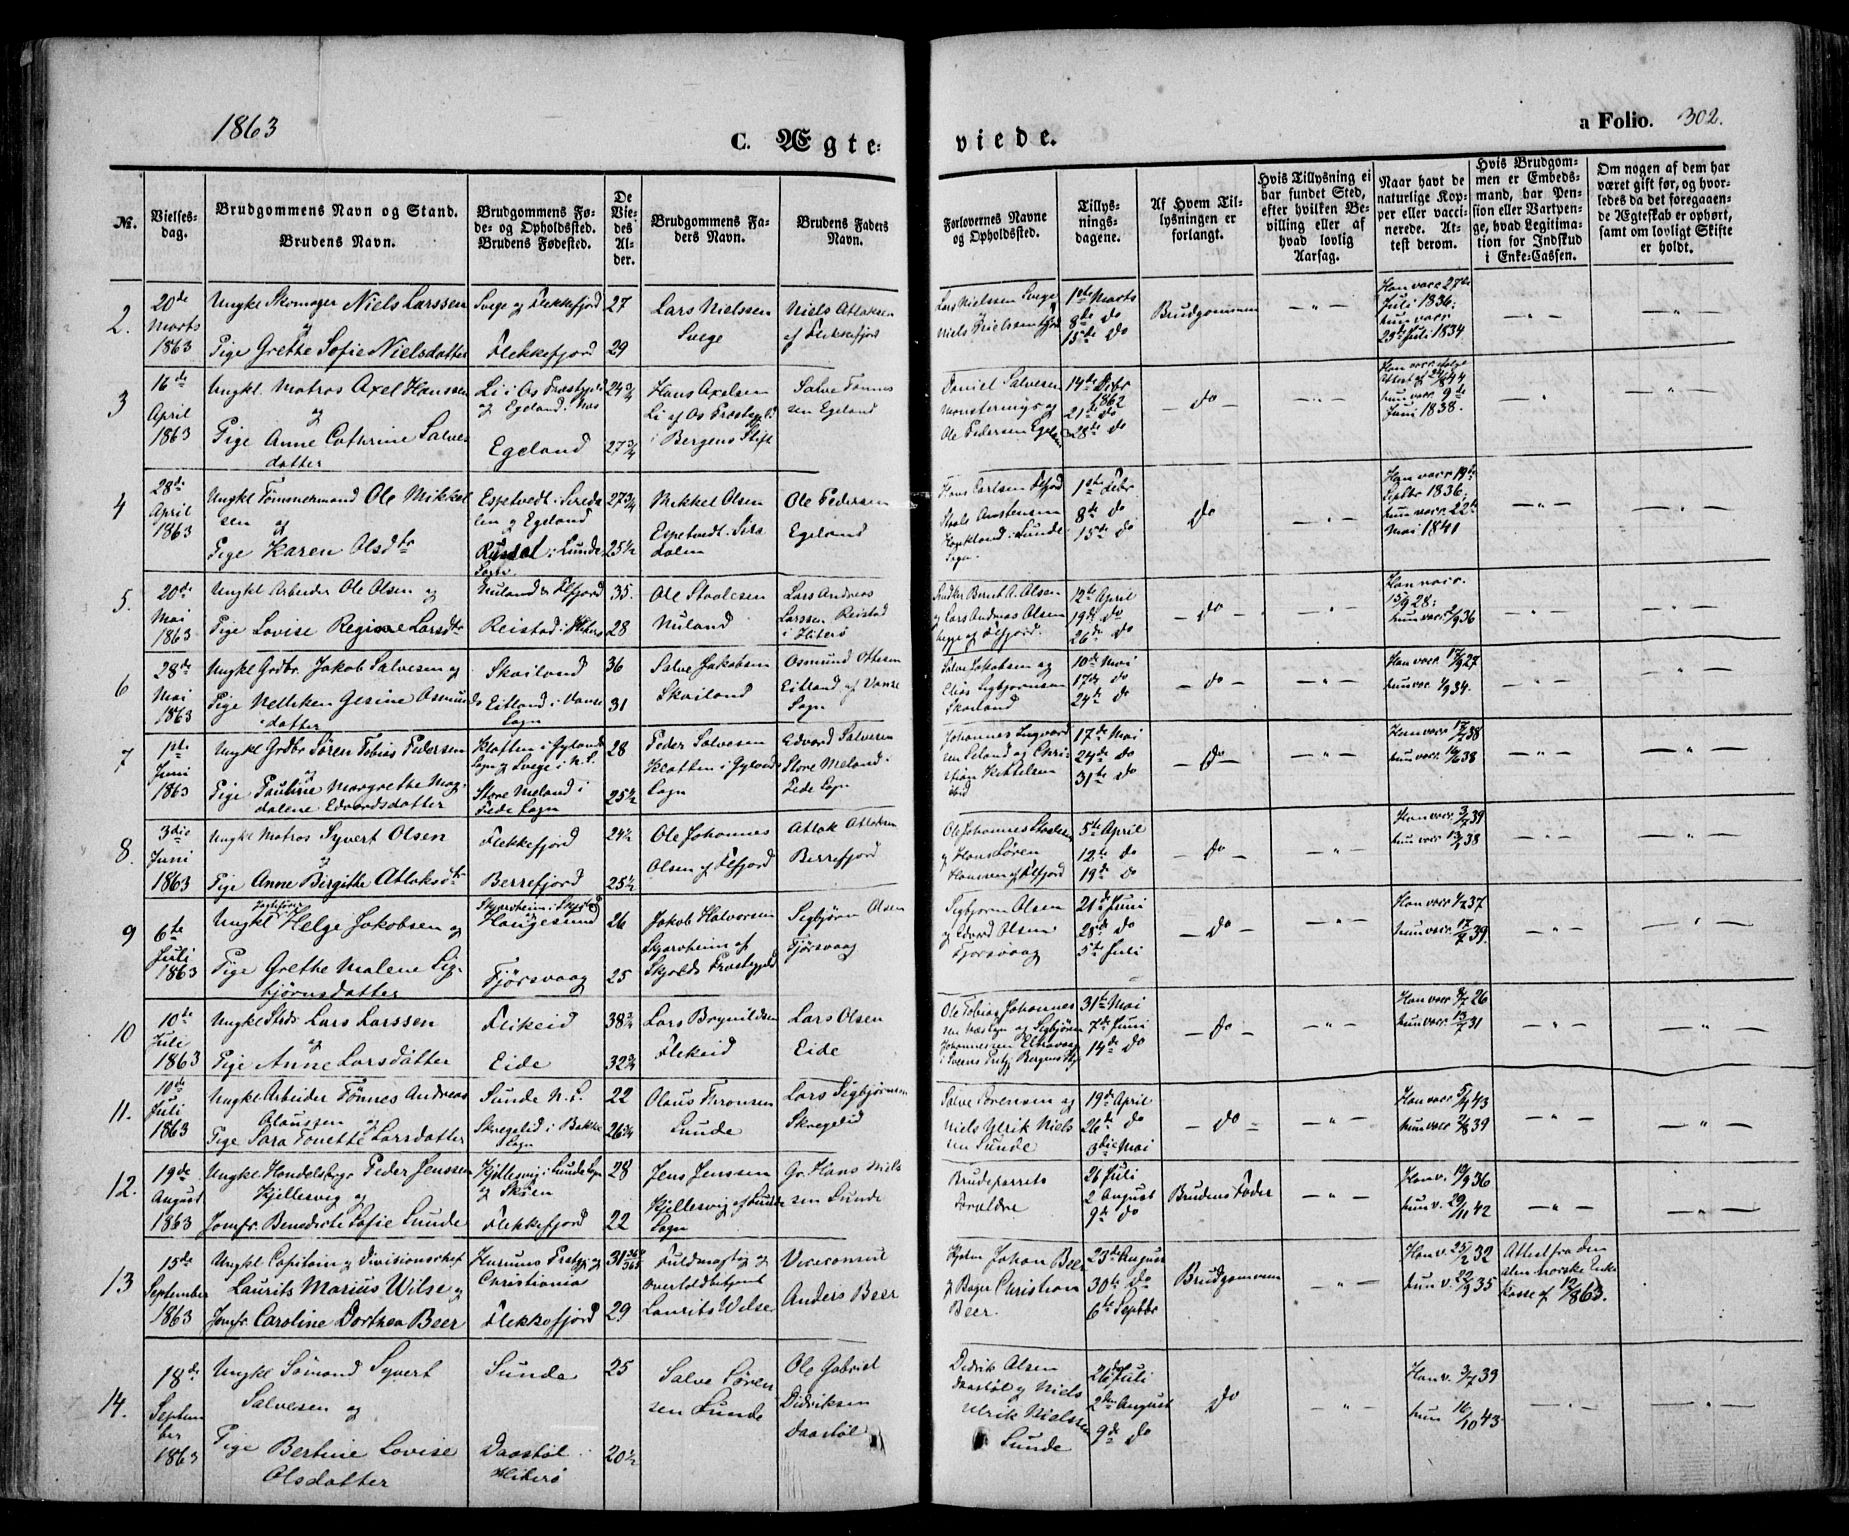 1863
C. Ægte-
viede.
a Folio. 302.
№.
Vielses-
dag.
Brudgommens Navn og Stand.
Brudens Navn.
Brudgommens Fø-
de- og Opholdssted.
Brudens Fødested.
De
Vie-
des
Al-
der.
Brudgommens Fa-
ders Navn.
Brudens Faders
Navn.
Forlovernes Navne
og Opholdssted.
Tillys-
nings-
dagene.
Af Hvem Til-
lysningen er
forlangt.
Hvis Tillysning ei
har fundet Sted,
efter hvilken Be-
villing eller af
hvad lovlig
Aarsag.
Naar havt de
naturlige Kop-
per eller vacci-
nerede. At-
test derom.
Hvis Brudgom-
men er Embeds-
mand, har Pen-
sion eller Vartpen-
ge, hvad Legitima-
tion for Indskud
i Enke-Cassen.
Om nogen af dem har
været gift før, og hvor-
ledes da det foregaaen-
de Ægteskab er ophørt,
samt om lovligt Skifte
er holdt.
2.
20de
Marts
1863
Ungkl Skomager Niels Larssen
og
Pige Grethe Sofie Nielsdatter
Svege og Flekkefjord
Flekkefjord
27
29
Lars Nielssen
Svege
Niels Atlaksen
af Flekkefjord
Lars Nielssen Svege
Niels Nielssen
1ste Marts
8de do
15de do
Brudgommen
— " —
Han vacc 27de
Juli 1836;
hun vacc
25de Juli 1834
— " —
— " —
3
16de
April
1863
Ungkl. Matros Axel Hanssen
og
Pige Anne Cathrine Salves-
datter
Li i Os Præstegjeld
og Egeland i Næs
Egeland
24 3/4
27 3/4
Hans Axelsen
Li af Os Præstegjeld
i Bergens Stift
Salve Tønnes
sen Egeland
Daniel Salvesen
Ole Pedersen Egeland
14de Debr
1862
21de do
28de do
— do —
— " —
hun vacc 9de
Juni 1838.
— " —
— " —
4
28de
April
1863
Ungkl Tømmermand Ole Mikkel
sen og
Pige Karen Olsdtr
Espetvedt i Sireda-
len og Egeland
i Lunde
27 3/4
25 1/2
Mikkel Olsen
Espetvedt Sire
dalen
Ole Pedersen
Egeland
Hans Carlsen Flfjord
i Lunde
Sogn.
1ste Febr
8de do
15de do
do
— " —
Han vacc 19de
Septbr 1836;
hun vacc 22de
Mai 1841
— " —
— " —
5.
20de
Mai
1863
Ungkl Arbeider Ole Olsen og
Pige Lovise Regine Larsdtr
Nuland & Flfjord
Reistad i Hiterø
35.
28
Ole Staalesen
Nuland
Lars Andreas
Larssen Reistad
i Hiterø
Bernt A. Olsen
og Lars Andreas Olsen
begge af Flfjord.
12te April
19de do
26de do
— do —
— " —
Han vacc.
15/9 28;
hun vacc 2/9 36
— " —
— " —
6
28de
Mai
1863
Ungkl Grdbr. Jakob Salvesen og
Pige Nelliken Gesine Osmunds
datter
Skailand
Eitland i Vanse
Sogn
36
31
Salve Jakobsen
Skailand
Osmund Ottesen
Eitland af Vanse
Sogn
Salve Jakobsen og
Elias Sigbjørnsen
Skailand
10de Mai
17de do
24de do
— do —
— " —
Han vacc 17/9 27
hun vacc 1/9 34.
— " —
— " —
7
1ste
Juni
1863
Ungkl Grdbr Søren Tobias Pedersen
og
Pige Pauline Margrethe Mag-
dalene Edvardsdatter
Klatten i Gylands
Sogn og Svege i N. S.
Store Meland i
Fede Sogn
28
25 1/2
Peder Salvesen
Klatten i Gylands
Sogn
Edvard Salvesen
Store Meland i
Fede Sogn
Johannes Ingvard
sen Eeland og Chri-
stian Kettelsen
ibid
17de Mai
24de do
31te do
— do —
— " —
Han vacc 17/7 38
hun vacc 16/6 38
— " —
— " —
8.
3die
Juni
1863
Ungkl Matros Syvert Olsen
og
Pige Anne Birgitte Atlaksdtr
Flekkefjord
Berrefjord
24 1/2
25 1/2
Ole Johannes
Olsen af Flfjord
Atlak Atlaksen
Berrefjord
Ole Johannes Staalesen
og Hans Søren
Hanssen af Flfjord
5te April
12te do
19de do
— do —
— " —
Han vacc 3/7 39
hun vacc 13/9 38
— " —
— " —
9
6te
Juli
1863
Ungkl Helge Jakobsen og
Pige Grethe Malene Sig-
bjørnsdatter
Skjersheim i Skjold
og
Haugesund
Fjørsvaag
26
25
Jakob Halvorsen
Skjersheim af
Skjolds Præstegjeld
Sigbjørn Olsen
Fjørsvaag
Sigbjørn Olsen
og Edvard Olsen
Fjørsvaag
21de Juni
28de do
5te Juli
— do —
— " —
Han vacc 1/7 37
hun vacc 17/7 39.
— " —
— " —
10
10de
Juli
1863
Ungkl Lars Larssen
og
Pige Anne Larsdatter
Flikeid
Eide
38 3/4
32 3/4
Lars Brynildsen
Flikeid
Lars Olsen
Eide
Ole Tobias Johannes
sen og Sigbjørn
Johannessen
14de do
31te Mai
7de Juni
— do —
— " —
Han vacc 8/7 26
hun vacc 13/7 31
— " —
— " —
11.
10de
Juli
1863
Ungkl Arbeider Tønnes Andreas
Olaussen og
Pige Sara Tonette Larsdatter
Sunde N. S.
Skregelid i Bakke
Sogn
22
26 3/4
Olaus Thronsen
Sunde
Lars Sigbjørnsen
Skregelid
Salve Sørensen og
Niels Ulrik Niels
sen Sunde
19de April
26de do
3die Mai
— do —
— " —
Han vacc 5/9 43
hun vacc 2/8 39
— " —
— " —
12.
19de
August
1863
Ungkl Handelsbgr Peder Jenssen
Kjellesvig og
Jomfr. Benedicte Sofie Sunde
Kjellesvig i Lunde Sogn
og Skøien
Flekkefjord
28
22
Jens Jenssen
Kjellesvig af Lunde
Sogn
Gr. Hans Niels
sen Sunde
Brudeparrets
Forældre
26 Juli
2 August
9de do
Brudens Fader
— " —
Han v. 19/9 36
hun v. 29/11 42
— " —
— " —
13
15de
September
1863
Ungkl Capitain og Divisionschef
Laurits Marius Wilse og
Jomfr Caroline Dorthea Beer
Hurums Prstgj og
Christiania
Flekkefjord
31
29
Fuldmægtig og
Overtoldbetjent
Laurits Wilse
Viceconsul
Anders Beer
Kjøbm Johan Beer
og Bager Christian
Beer.
23de August
30te do
6te Septbr
Brudgommen
— " —
Han v. 25/2 32
hun v. 22/9 35
Attest fra den
alm norske Enke
kasse af 12/8 63.
14.
18de
Septem
ber
1863
Ungkl Sømand Syvert
Salvesen og
Pige Bertine Lovise
Olsdatter
Sunde
Daastøl
Hiterø
25
20 1/2
Salve Søren
sen Sunde
Ole Gabriel
Didriksen
Daastøl
Didrik Olsen
Daastøl og Niels
Ulrik Nielssen
Sunde
26de Juli
2den August
9de do
do
— " —
Han v. 3/7 39
hun 16/10 43
— " —
— " —